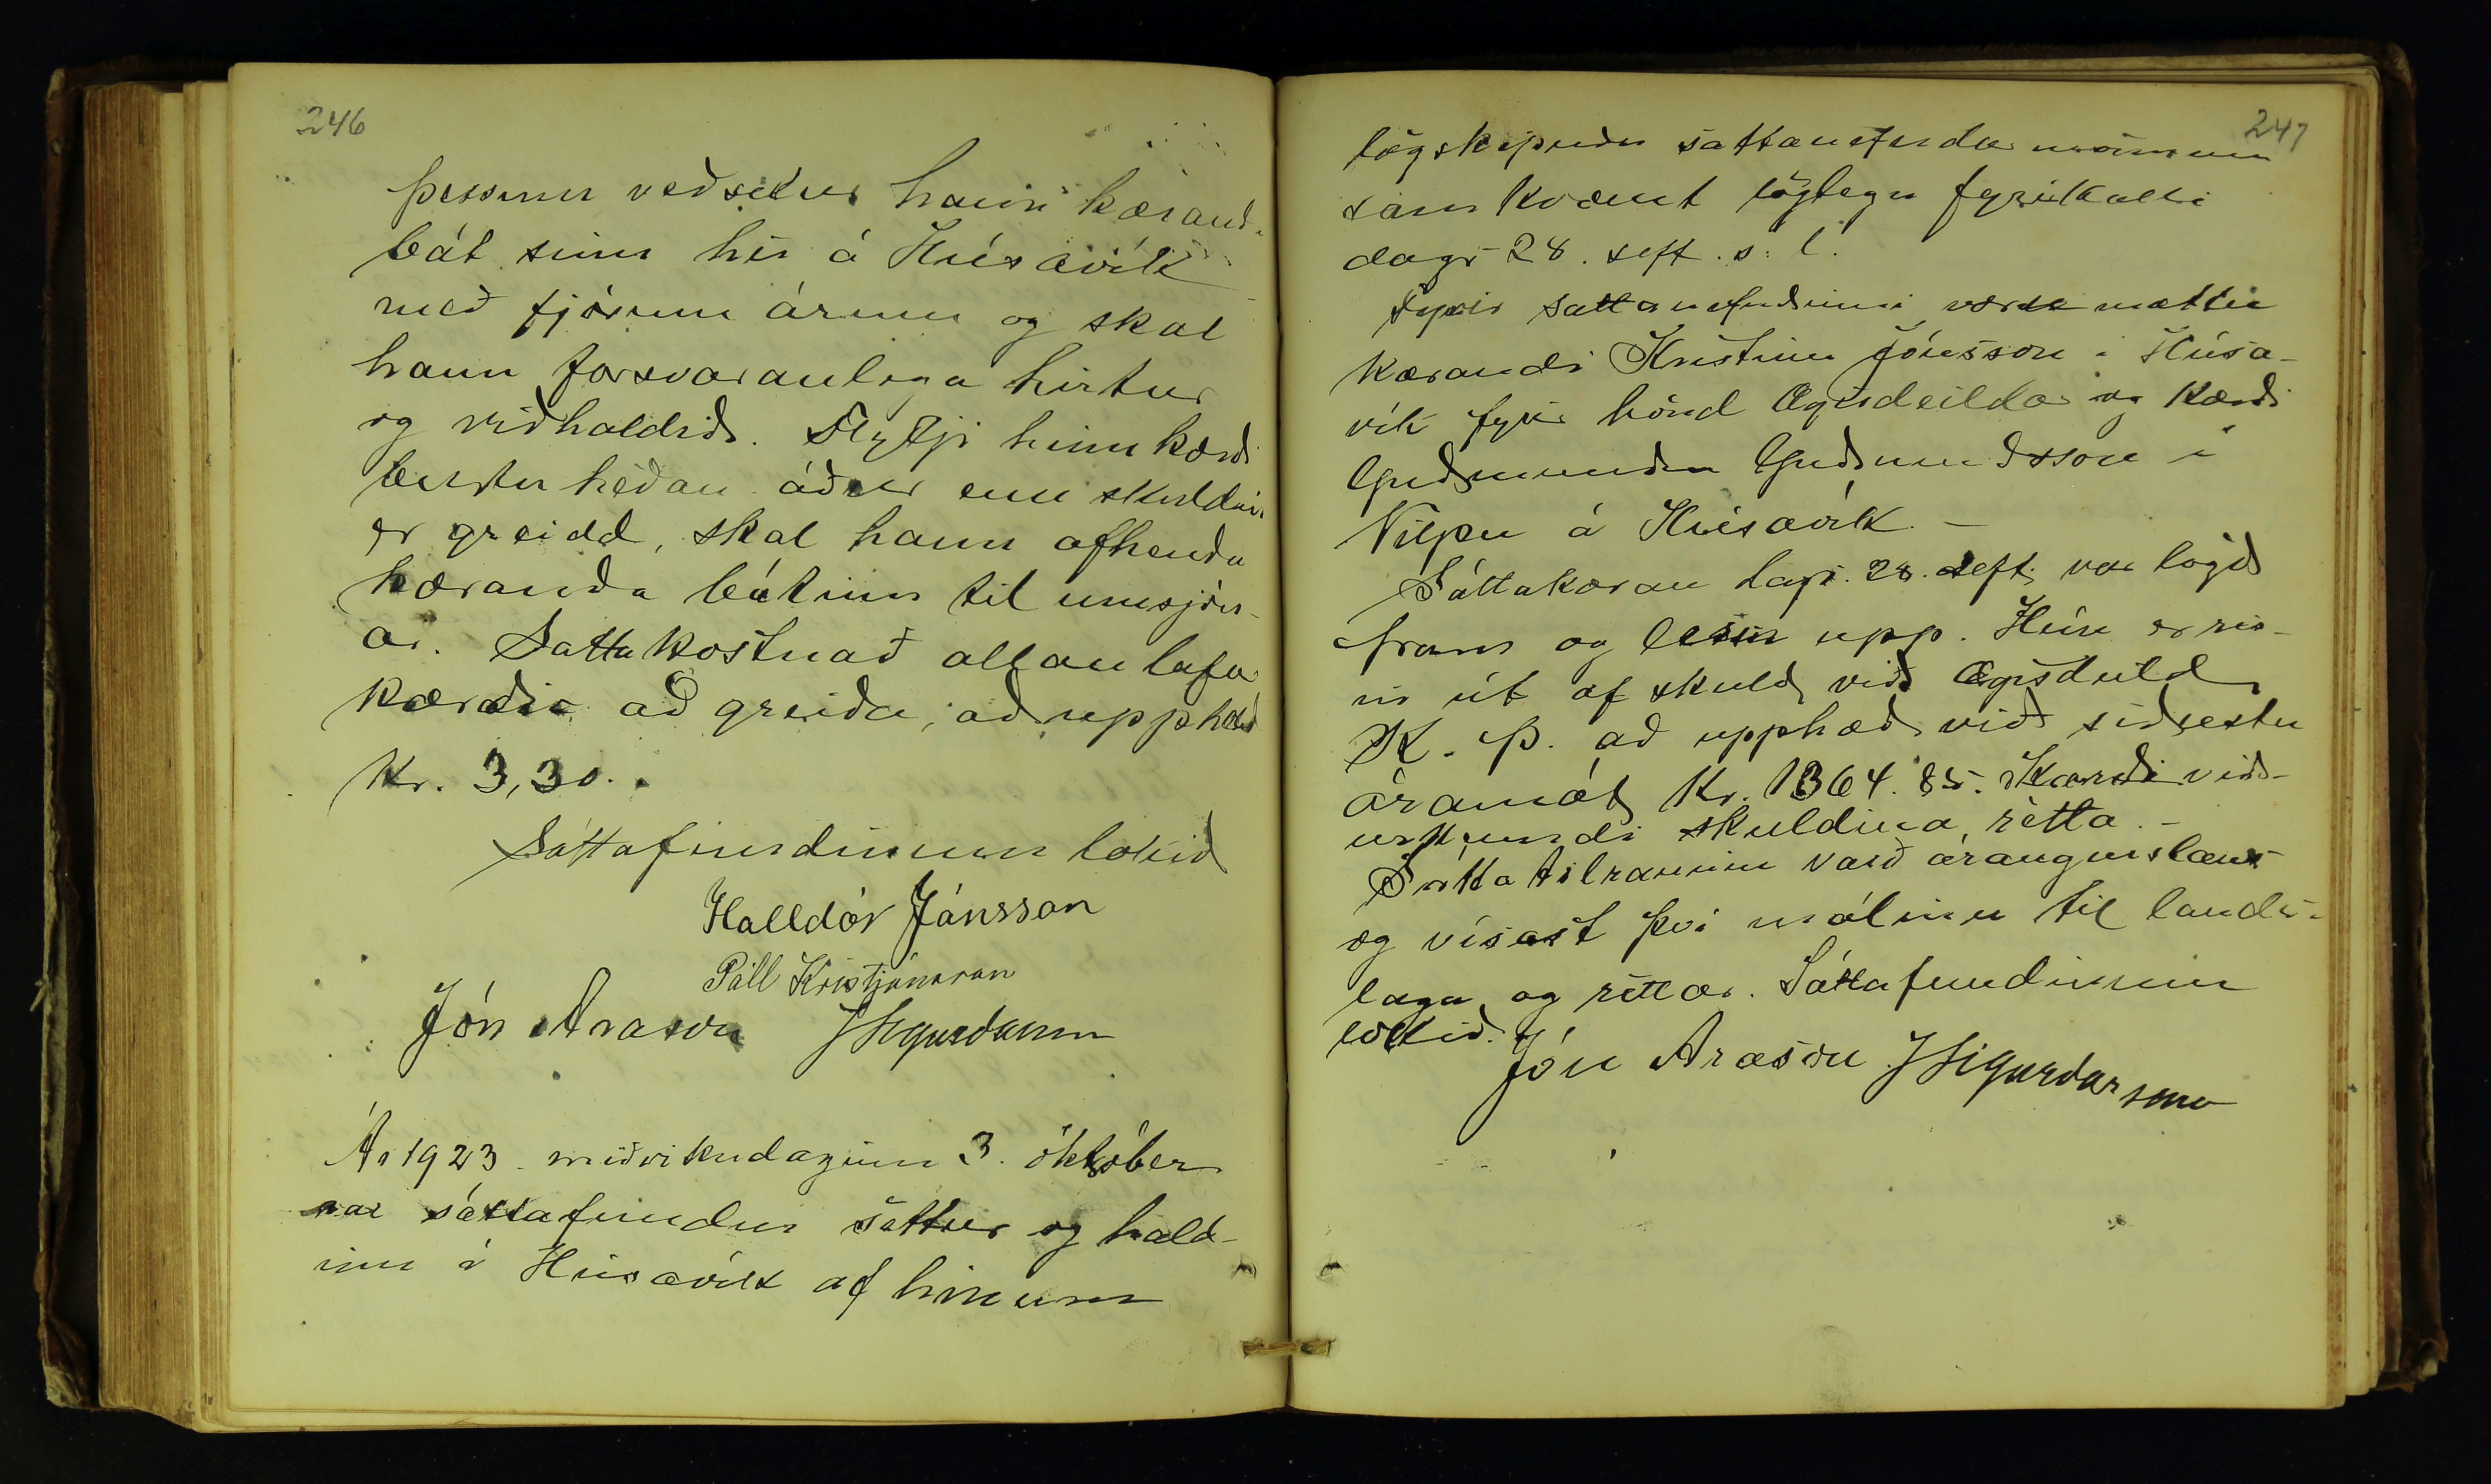 246
þessum veðsetur hann kærand.
bát sinn hér á Húsavík
með fjórum árum og skal
hann forsvaranlega hirtur
og viðhaldið. Flytji hinn kærði
burtu héðan áður enn skuldin
er greidd, skal hann afhenda
kæranda bátinn til umsjón-
ar. Sáttakostnað allan lofar
kærði að greiða, að upphæð
kr. 3,30.
Sáttafundinum lokið
Halldór Jónsson
Páll Kristjánsson
Jón Arason JSigurdsson
Ár 1923 miðvikudaginn 3. október
var sáttafundur settur og hald-
inn á Húsavík af hinum
247
lögskipuðu sáttanefnda mönnum
samkvæmt löglegu fyrirkalli
dags 28. sept. s. l.
Fyrir sáttanefndinni mætti
kærandi Kristinn Jónsson í Húsa-
vík fyrir hönd Ægisdeildar og kærði
Guðmundur Guðmundsson í
Nípu á Húsavík. -
Sáttakæran dags. 28. sept. var lögð
fram og lesin upp. Hún er ris-
in út af skuld við Ægisdeild
K. Þ. að upphæð við síðustu
áramót kr. 1364.85. Kærði við-
urkendi skuldina rétta. -
Sáttatilraunin varð árangurslaus
og vísast því málinu til lands-
laga og réttar. Sáttafundinum
lokið.
Jón Arason JSigurdarsson